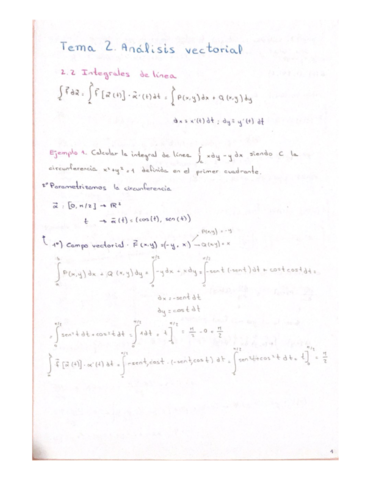 Tema 2. Análisis vectorial
2.2 Integrales de línea
∫ f dα = ∫ f [α(t)] · α'(t) dt = ∫ P(x,y) dx + Q(x,y) dy
dx = x'(t) dt ; dy = y'(t) dt
Ejemplo 1. Calcular la integral de línea ∫ xdy - ydx siendo C la
circunferencia x²+y²=1 definida en el primer cuadrante.
1º Parametrizamos la circunferencia
α : [0, π/2] → ℝ²
t → α(t) = (cos(t), sen(t))
1º) Campo vectorial · F(x,y) = (-y, x)
P(x,y) = -y
Q(x,y) = x
∫ P(x,y) dx + Q(x,y) dy = ∫ -y dx + x dy = ∫ -sent (-sent) dt + cost cost dt =
dx = -sent dt
dy = cost dt
= ∫ sen²t dt + cos²t dt = ∫ dt = t ] = π/2 - 0 = π/2
∫ f [α(t)] · α'(t) dt = ∫ (-sent, cost) · (-sent, cost) dt = ∫ sen²t + cos²t dt = t ] = π/2